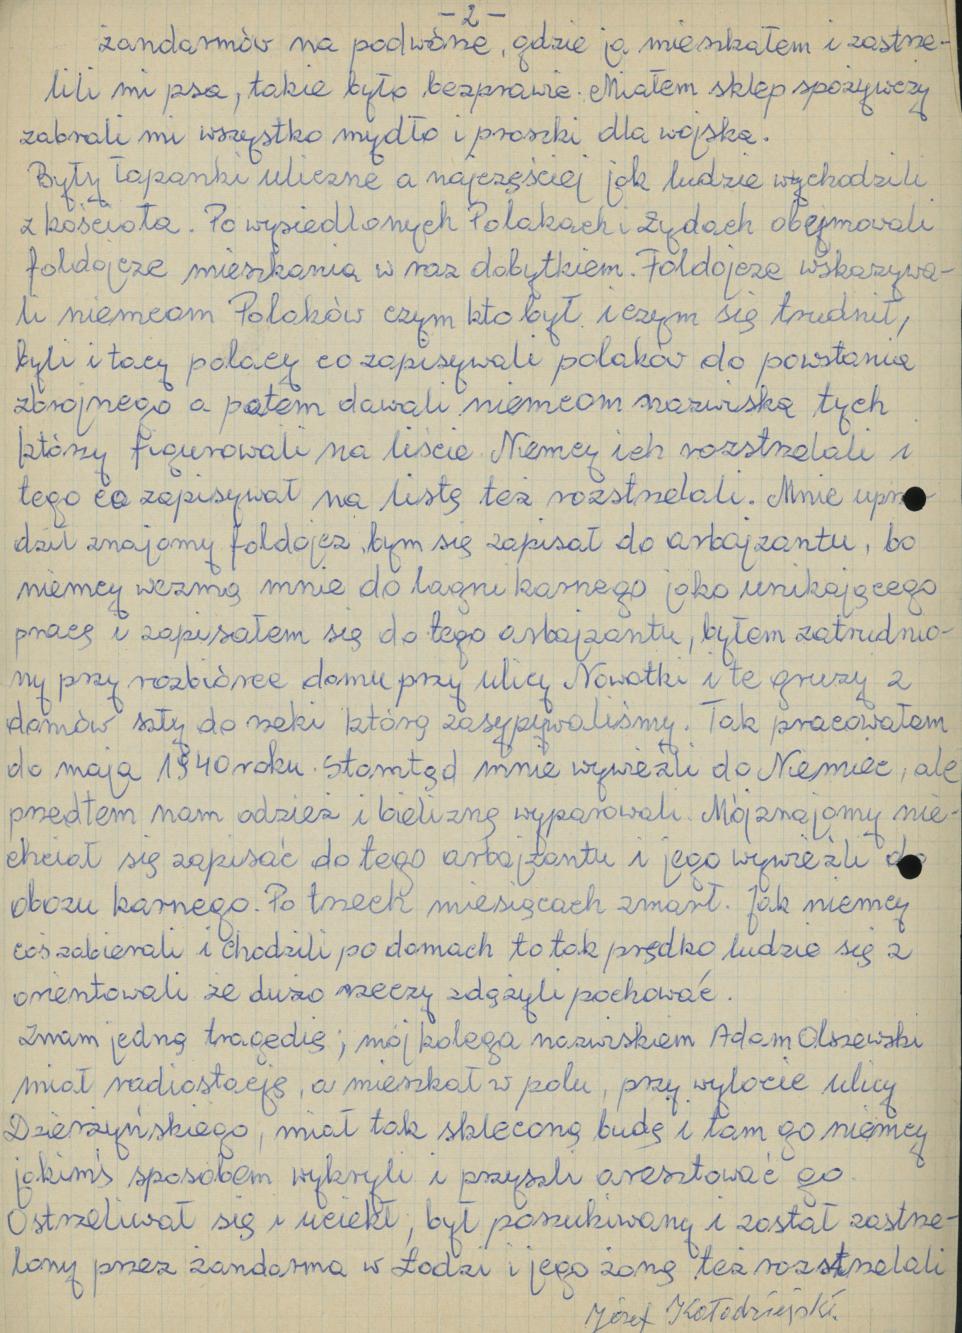 - 2 -
żandarmów na podwórze, gdzie ja mieszkałem i zastrze-
lili mi psa, takie było bezprawie. Miałem sklep spożywczy
zabrali mi wszystko mydło i proszki dla wojska.
Były łapanki uliczne a najczęściej jak ludzie wychodzili
z kościoła. Po wysiedlonych Polakach i Żydach obejmowali
foldojcze mieszkania w raz dobytkiem. Foldojcze wskazywa-
li niemcom Polaków czym kto był i czym się trudnił,
byli i tacy polacy co zapisywali polaków do powstania
zbrojnego a potem dawali niemcom nazwiska tych
którzy figurowali na liście Niemcy ich rozstrzelali i
tego co zapisywał na listę też rozstrzelali. Mnie
dził znajomy foldojcz, bym się zapisał do arbajzantu, bo
niemcy wezmą mnie do lagru karnego jako unikającego
pracę i zapisałem się do tego arbajzantu, byłem zatrudnio-
ny przy rozbiórce domu przy ulicy Nowotki i te gruzy z
domów szły do rzeki którą zasypywaliśmy. Tak pracowałem
do maja 1940 roku. Stamtąd mnie wywieźli do Niemiec, ale
przedtem nam odzież i bieliznę wyparowali. Mój znajomy nie-
chciał się zapisać do tego arbajzantu i jego wywieźli do
obozu karnego. Po trzech miesiącach zmarł. Jak niemcy
coś zabierali i chodzili po domach to tak prędko ludzie się z
orientowali że dużo rzeczy zdążyli pochować.
Znam jedną tragedię; mój kolega nazwiskiem Adam Olszewski
miał radiostację, a mieszkał w polu, przy wylocie ulicy
Dzierżyńskiego, miał tak skleconą budę i tam go niemcy
jakimś sposobem wykryli i przyszli aresztować go.
Ostrzeliwał się i uciekł, był poszukiwany i został zastrze-
lony przez żandarma w Łodzi i jego żonę też rozstrzelali
Józef Kołodziejski.